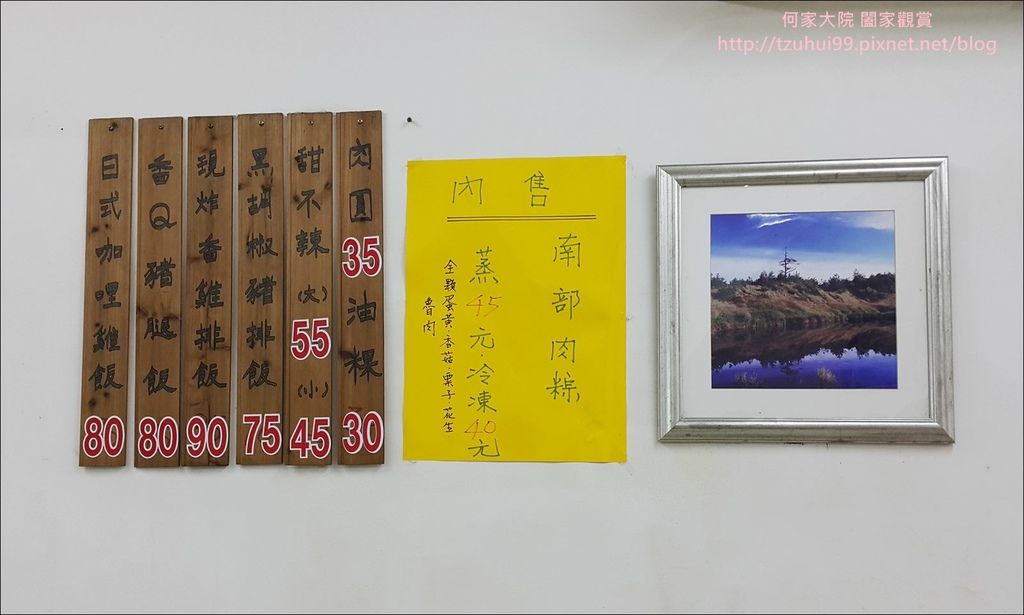 何家大院 闔家觀賞
http://tzuhui99.pixnet.net/blog
肉圓 35 油粿 30
甜不辣 (大) 55 (小) 45
黑胡椒豬排飯 75
現炸香雞排飯 90
香Q豬腿飯 80
日式咖哩雞飯 80
內售
南部肉粽
蒸45元·冷凍40元
全顆蛋黃·香菇·栗子·花生
魯肉